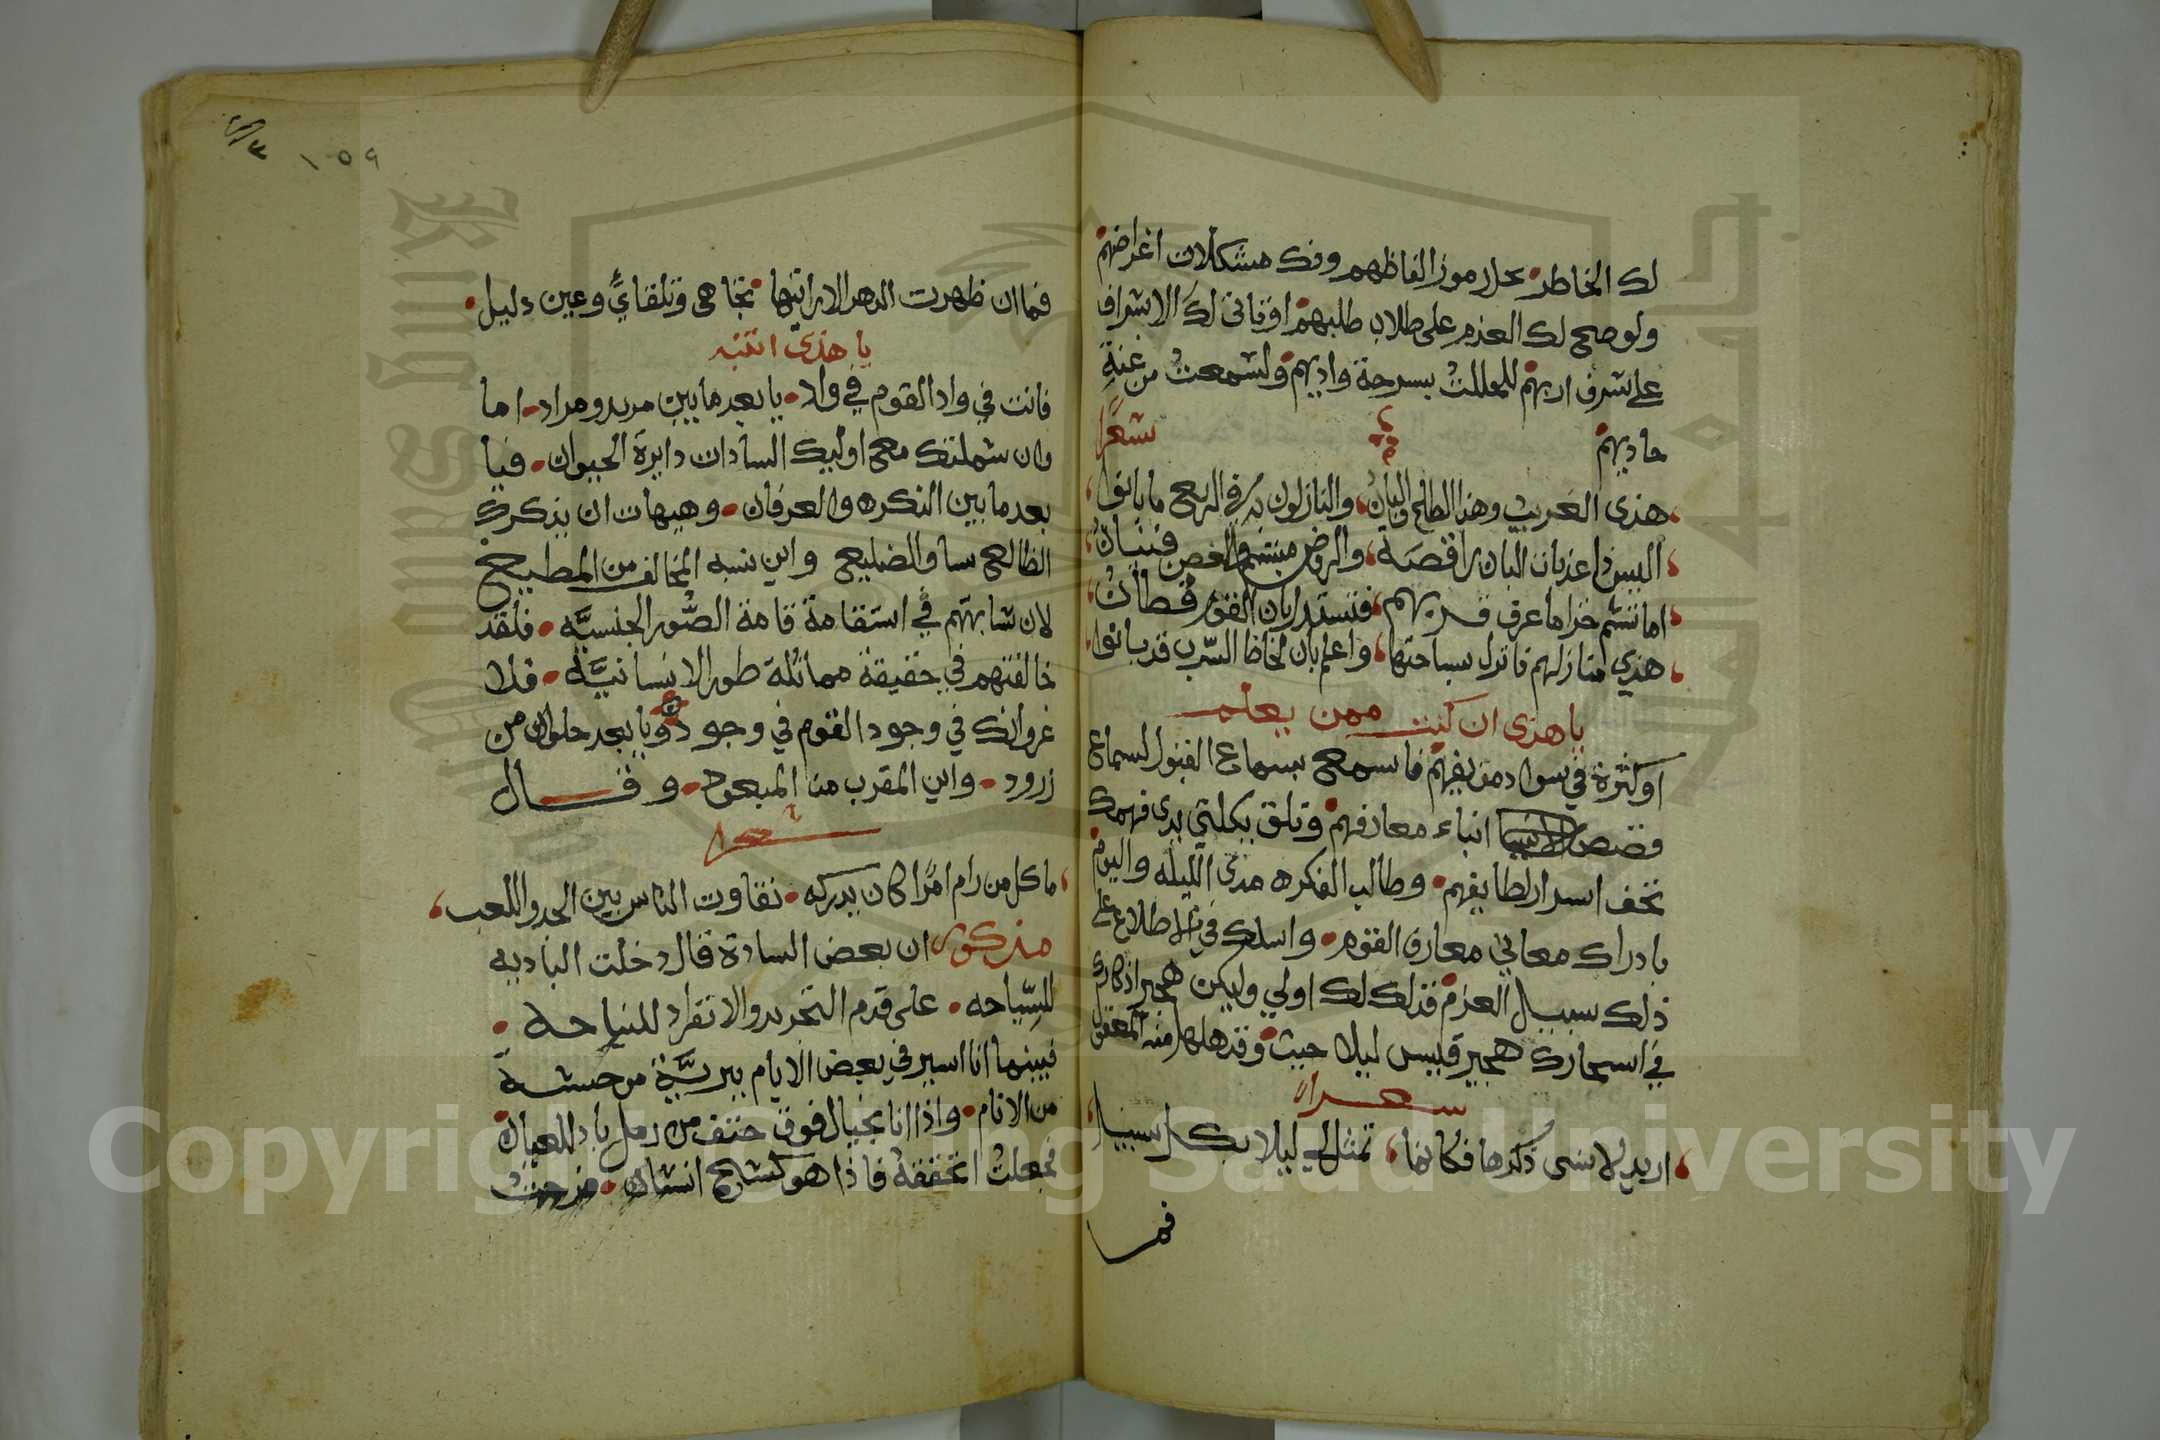 لك الخاطر بحل رموز الفاظهم وفك مشكلات اغراضهم
ولو صح لك العزم على طلاب طلبهم اوفاتى لك الاشراف
على شرف اربهم للمللت بسرحة واديهم ولسمعت من غنة
حاديهم شعرا
هذى العريب وهذا الطلح والبان والنازلون بذى الربع ما بانوا
اليس ذا عذبات البان راقصة والروض مبتسم والغصن فينان
اما تشم خزاما عرف قربهم فتستدل بان القوم قطان
هذي منازلهم فانزل بساحتها واعلم بان لحاظ السرب قد بانوا
يا هذى ان كنت ممن يعلم
او كثرة في سواد من يفهم فاسمع بسماع القبول لسماع
قصص انباء معارفهم وتلق بكلتي يدى فهمك
تحف اسرار لطايفهم وطالب الفكره مدى الليله واليوم
بادراك معاني معارف القوم واسلك في الاطلاع على
ذلك سبيل العزم فذلك لك اولي وليكن هجير اذكارك
في اسحارك هجير قيس ليلا حيث وقد هلها منه المعقول
شعرا
اريد لانسى ذكرها فكانما تمثل لي ليلا بكل سبيل
فما
١٥٩
فما ان ظهرت الدهر الا رايتها تجاهى وتلقاي وعين دليل
يا هذى انتبه
فانت في واد القوم في ولا يا بعد ما بين مريد ومراد اما
وان شملتك مع اوليك السادات دايرة الحيوان فيا
بعد ما بين النكره والعرفان وهيهات ان يدرك
الظالع ساو الضليع واين نسبه المخالف من المطيع
لان شابهتهم في استقامة قامة الصور الجنسيه فلقد
خالفتهم في حقيقة مماثلة طور الانسانيه فلا
غرو انك في وجود القوم في وجود ويا بعد حلوان من
زرود واين المقرب من المبعود وقال
شعرا
ما كل من رام امرا كان يدركه تفاوت الناس بين الجد واللعب
مذكور ان بعض السادة قال دخلت الباديه
للسياحه على قدم التجريد والانفراد للنياحة
فبينما انا اسير في بعض الايام ببرية موحشة
من الانام واذا انا بخيال فوق حتف من رمل باد للعيان
فجعلت اتحققه فاذا هو كشبح انسان